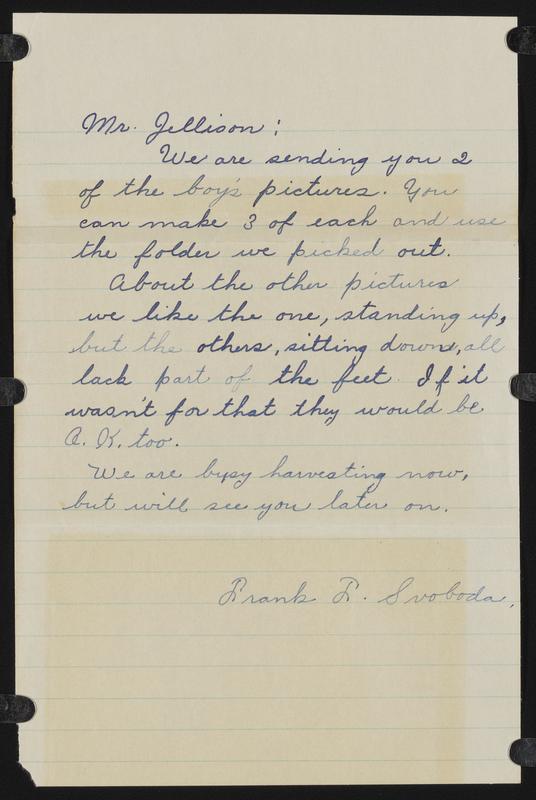 Mr. Jellison:
We are sending you 2
of the boy's pictures. You
can make 3 of each and use
the folder we picked out.
About the other pictures
we like the one, standing up,
but the others, sitting down, all
lack part of the feet. If it
wasn't for that they would be
O.K. too.
We are busy harvesting now,
but will see you later on.
Frank F. Svoboda.